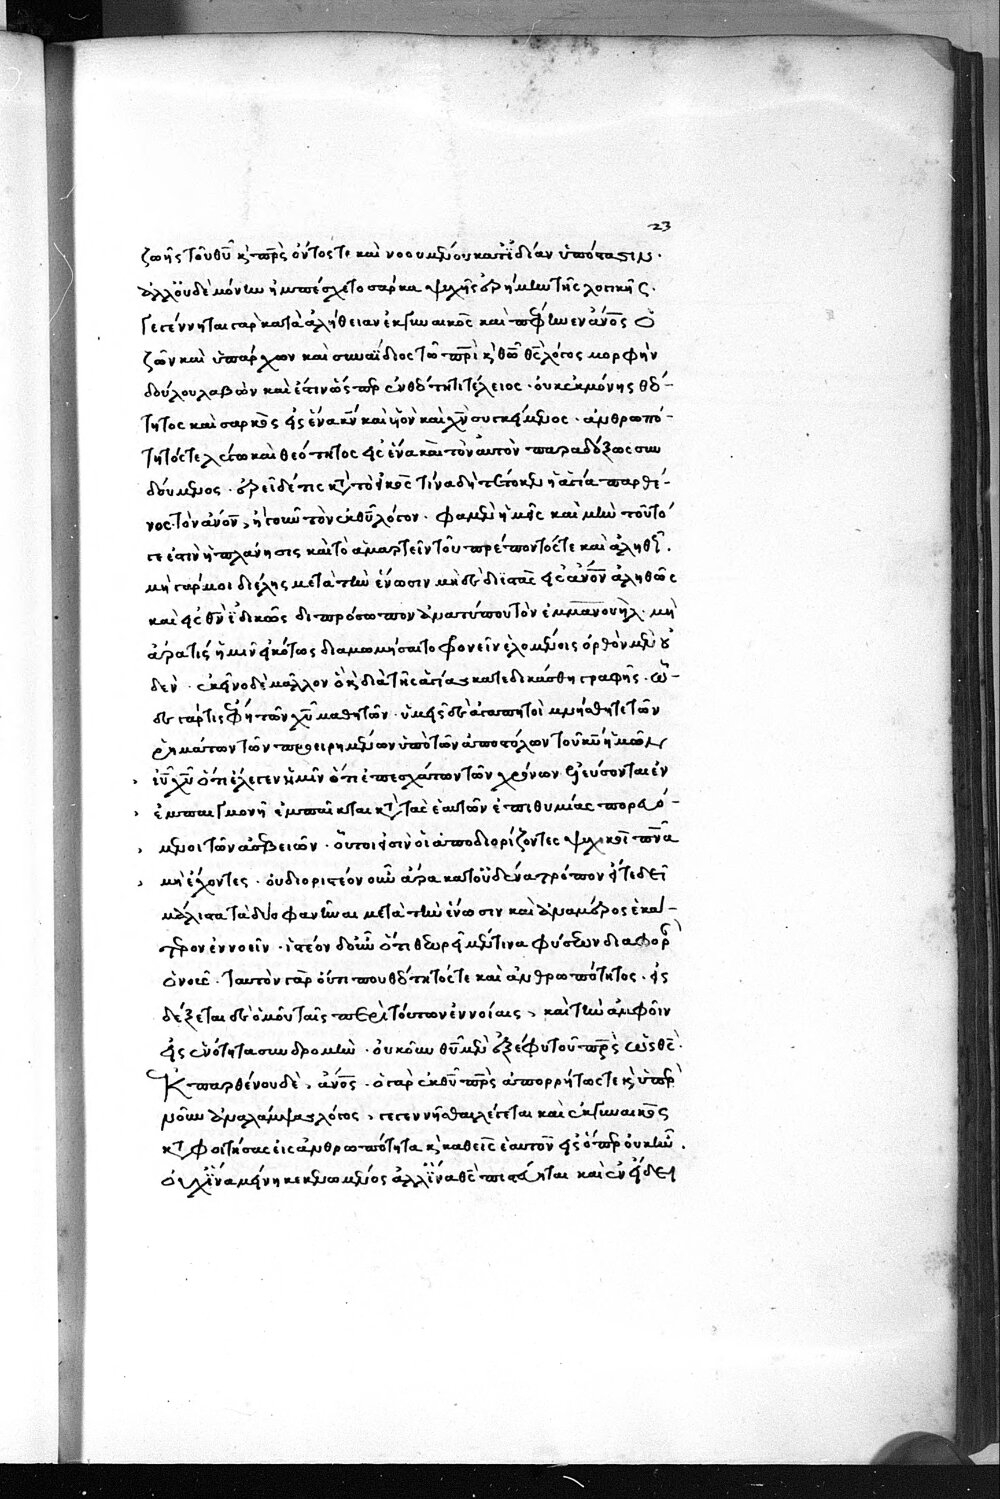 23
ζωῆς τοῦ θυ κ πρς ὄντος τε καὶ νοουμένου κατ' ἰδίαν ὑπόστασιν.
ἀλλ' οὐδὲ μόνην ἠμπέσχετο σάρκα ψυχῆς ἔρημον τῆς λογικῆς.
γεγέννηται γὰρ κατὰ ἀλήθειαν ἐκ γυναικὸς καὶ πέφηνεν ἄνος ὁ
ζῶν καὶ ὑπάρχων καὶ συναΐδιος τῷ πρὶ κ θω θς λόγος μορφὴν
δούλου λαβών καὶ ἔστιν ὥσπερ ἐν θεότητι τέλειος. οὐκ ἐκ μόνης θεό-
τητος καὶ σαρκὸς εἰς ἕνα κν καὶ υν καὶ χν συγκείμενος. ἀνθρωπό-
τητός τε λέγω καὶ θεότητος εἰς ἕνα καὶ τὸν αὐτὸν παραδόξως συν
δούμενος.
νος τὸν ἄνον, ἤγουν τὸν ἐκ θυ λόγον. φαμὲν ἡμεῖς καὶ μὴν τοῦτό
γε ἐστὶν ἡ πλάνησις καὶ τὸ ἁμαρτεῖν τοῦ πρέποντός τε καὶ ἀληθοῦς.
μὴ γάρ μοι διέλῃς μετὰ τὴν ἕνωσιν μηδὲ διϊστὰς εἰς ἄνον ἀληθῶς
καὶ εἰς θν ἰδικῶς διπρόσωπον ἀνατύπου τὸν ἐμμανουήλ. μὴ
ἄρα τις ἡμῖν εἰκότως διαμωμήσαιτο φρονεῖν ἑλομένοις ὀρθὸν μὲν οὐ
δέν. ἐκεῖνο δὲ μᾶλλον ὃ κ διὰ τῆς ἁγίας κατεδικάσθη γραφῆς. ὧ-
δε γάρ τις ἔφη τῶν χυ μαθητῶν. ὑμεῖς δὲ ἀγαπητοὶ μνήσθητε τῶν
ῥημάτων τῶν προειρημένων ὑπὸ τῶν ἀποστόλων τοῦ κυ ἡμῶν
ιυ χυ ὅτι ἔλεγεν ἡμῖν ὅτι ἐπ' ἐσχάτων τῶν χρόνων ἐλεύσονται ἐν
ἐμπαιγμονῇ ἐμπαῖκται κατὰ τὰς ἑαυτῶν ἐπιθυμίας πορευό-
μενοι τῶν ἀσεβειῶν. οὗτοι εἰσὶν οἱ ἀποδιορίζοντες ψυχικοὶ πνα
μὴ ἔχοντες. οὐ διοριστέον οὖν ἄρα κατ' οὐδένα τρόπον εἴτε δεῖ
μάλιστα τὰ δύο φάναι μετὰ τὴν ἕνωσιν καὶ ἀναμέρος ἑκά-
τερον ἐννοεῖν. ἰστέον δὲ οὖν ὅτι θεωρεῖ μέν τινα φύσεων διαφορὰν
ὁ νοῦς. ταὐτὸν γὰρ οὔτι που θεότητός τε καὶ ἀνθρωπότης. εἰς
δέξεται δὲ ὁμοῦ ταῖς περὶ τούτων ἐννοίαις, καὶ τὴν ἀμφοῖν
εἰς ἑνότητα συνδρομήν. οὐκοῦν θυ μὲν ἐξέφυ τοῦ πρς ὡς θς.
ἐκ παρθένου δὲ, ἄνος. ὁ γὰρ ἐκ θυ πρς ἀπορρήτως τε κ ὑπὲρ
νοῦν ἀναλάμψας λόγος, γεγεννῆσθαι λέγεται καὶ ἐκ γυναικὸς
καταφοιτήσας εἰς ἀνθρωπότητα κ καθεὶς ἑαυτὸν εἰς ὅπερ οὐκ ἦν.
οὐχ ἵνα μείνῃ κεκενωμένος ἀλλ' ἵνα θς πιστεύηται καὶ ἐν εἴδει